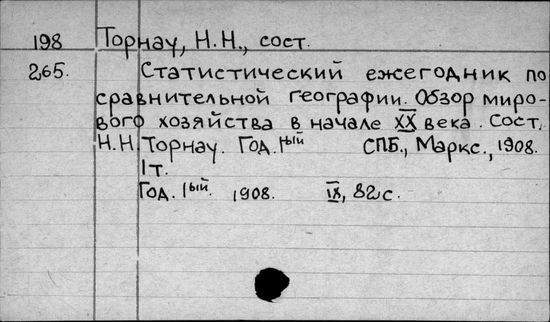 198 Торнау, Н.Н., сост.
265. Статистический ежегодник по
сравнительной географии. Обзор миро-
вого хозяйства в начале XX века. Сост.
Н.Н. Торнау. Год. 1ый СПБ., Маркс., 1908.
1т.
Год. 1ый. 1908. IX, 82 с.